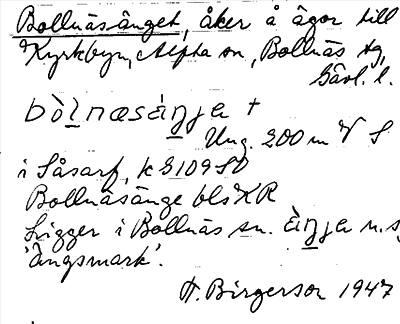 Bollnäsänget, åker å ägor till
Kyrkbyn, Alfta sn, Bollnäs tg,
Gävl. l.
bòlnæsäŋja +
Ung. 200 m V S
i Såsarf, k S109SO
Bollnäsänge bls KR
Ligger i Bollnäs sn. äŋja n.s.
'Ängsmark'.
H. Birgerson 1947